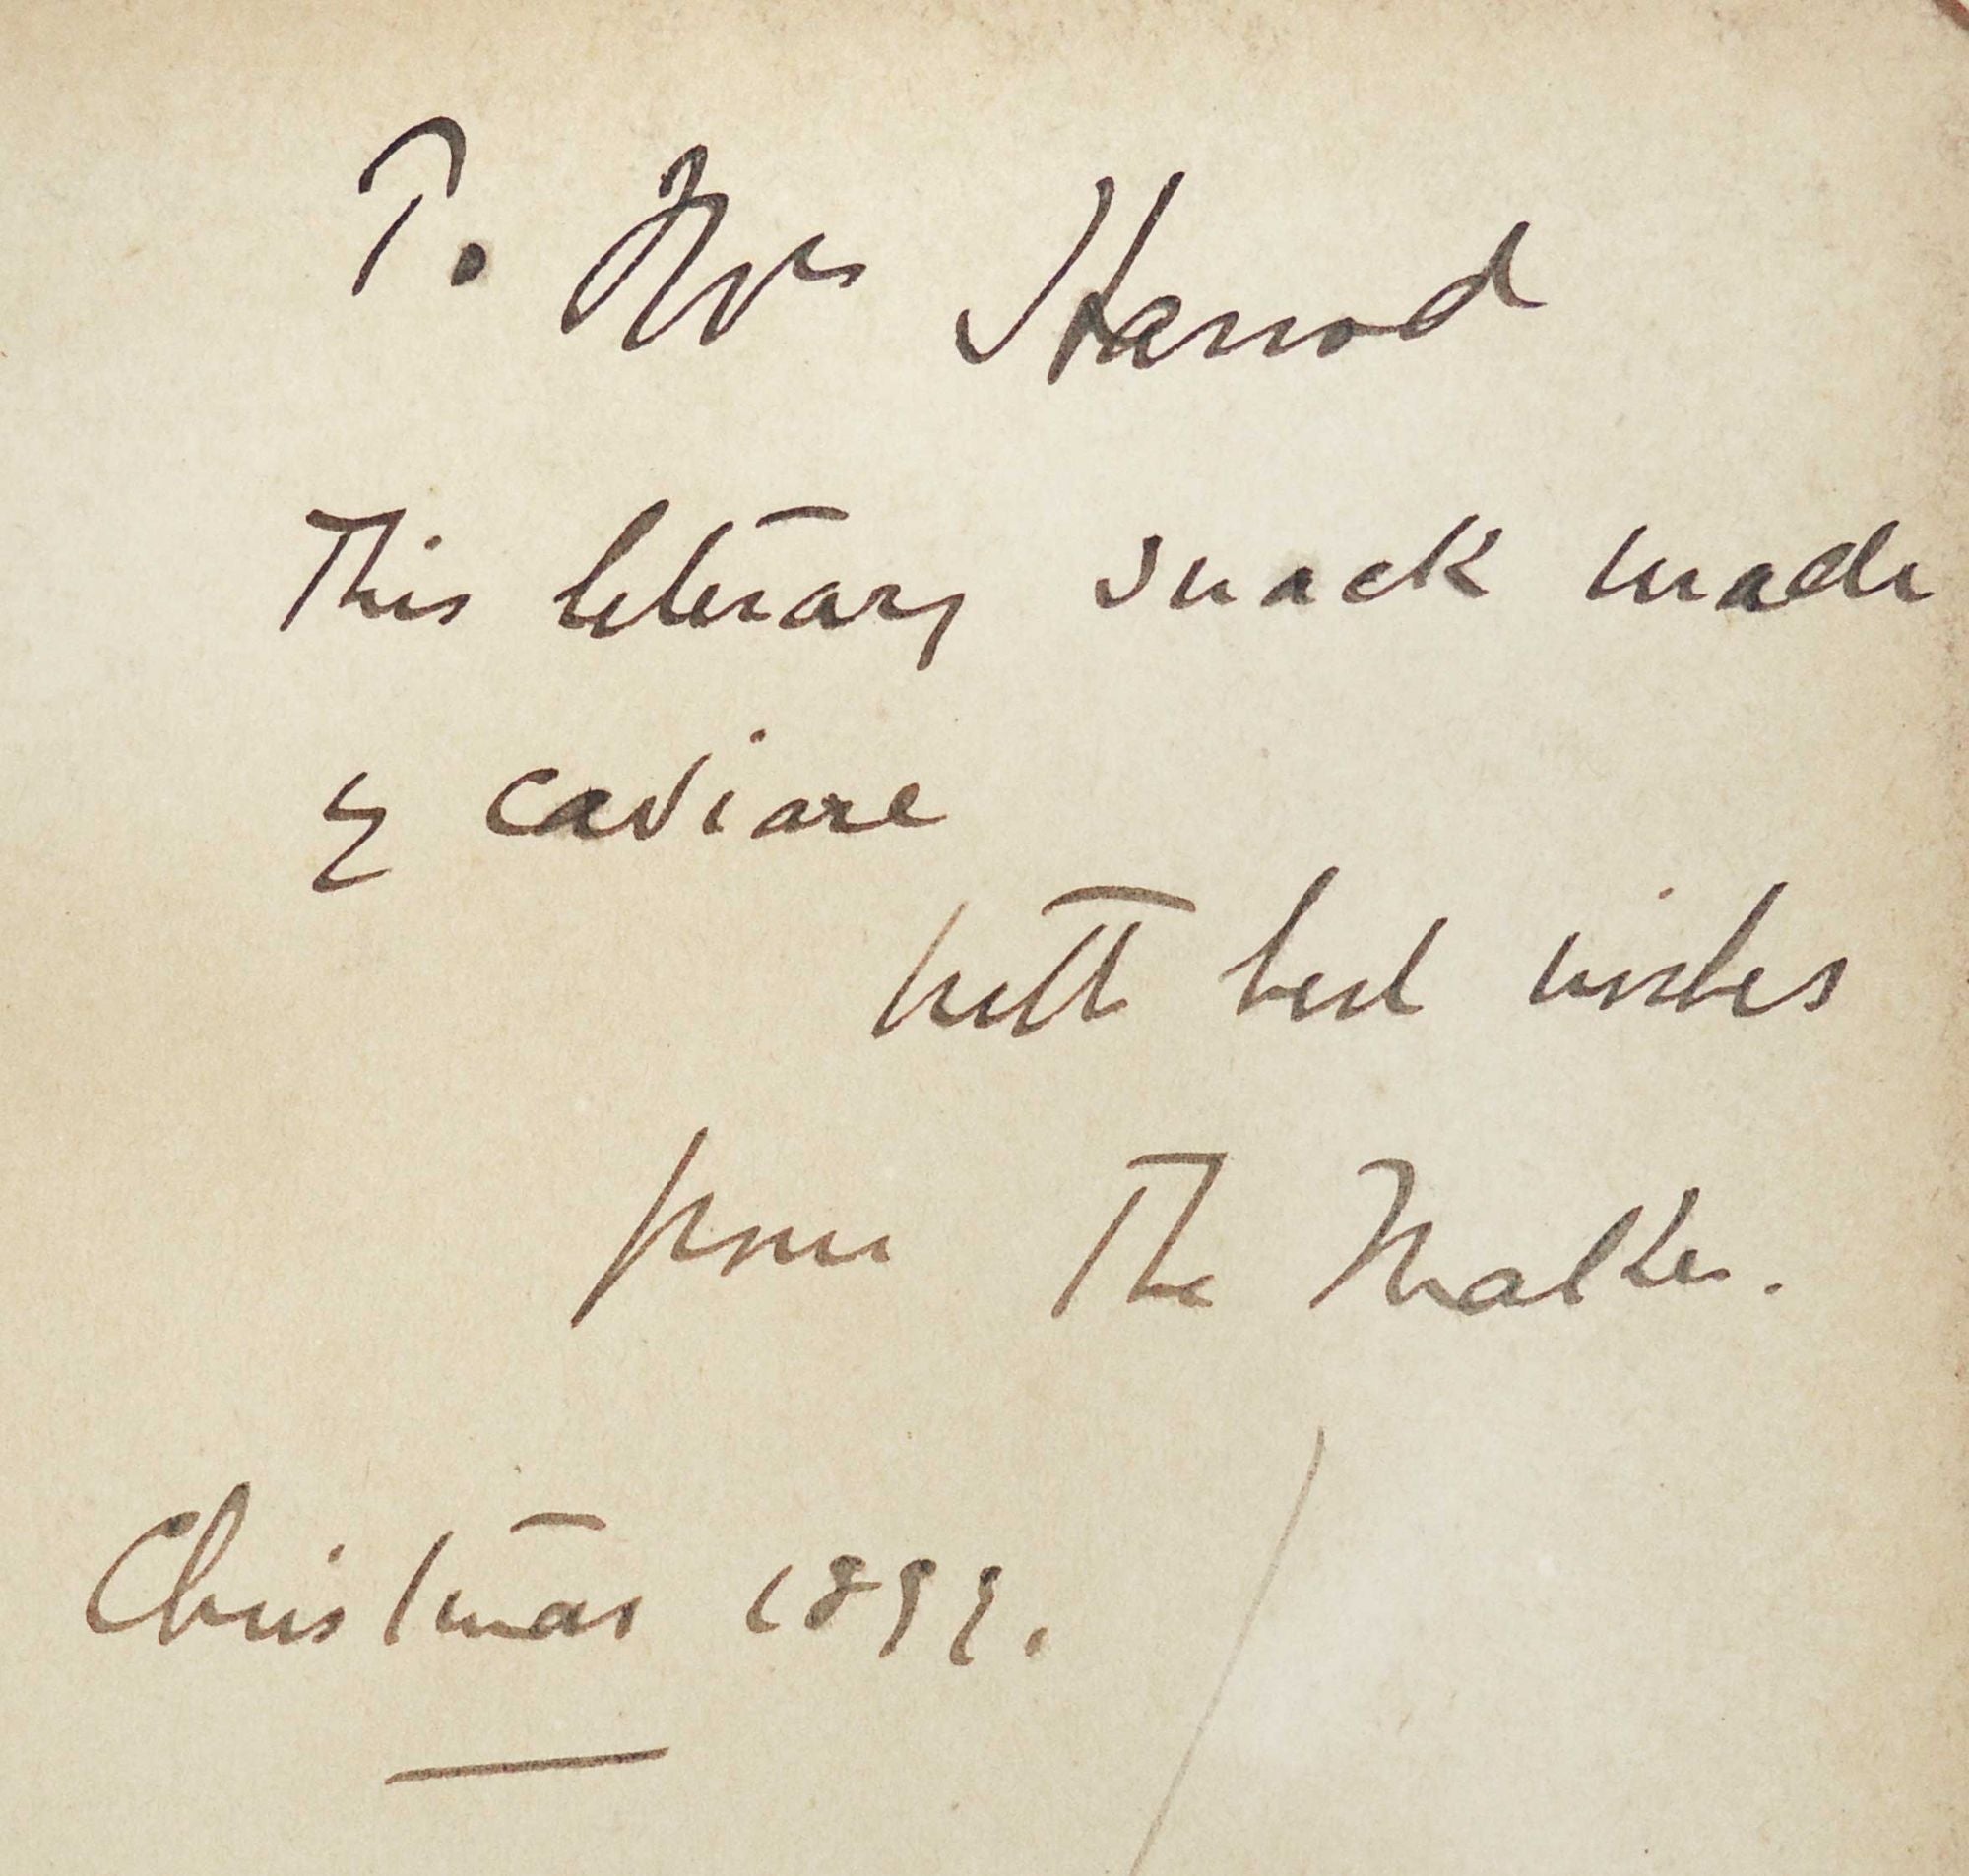 To Mrs Harrod
This literary snack made
of caviare
with best wishes
from The Maker.
Christmas 1899.